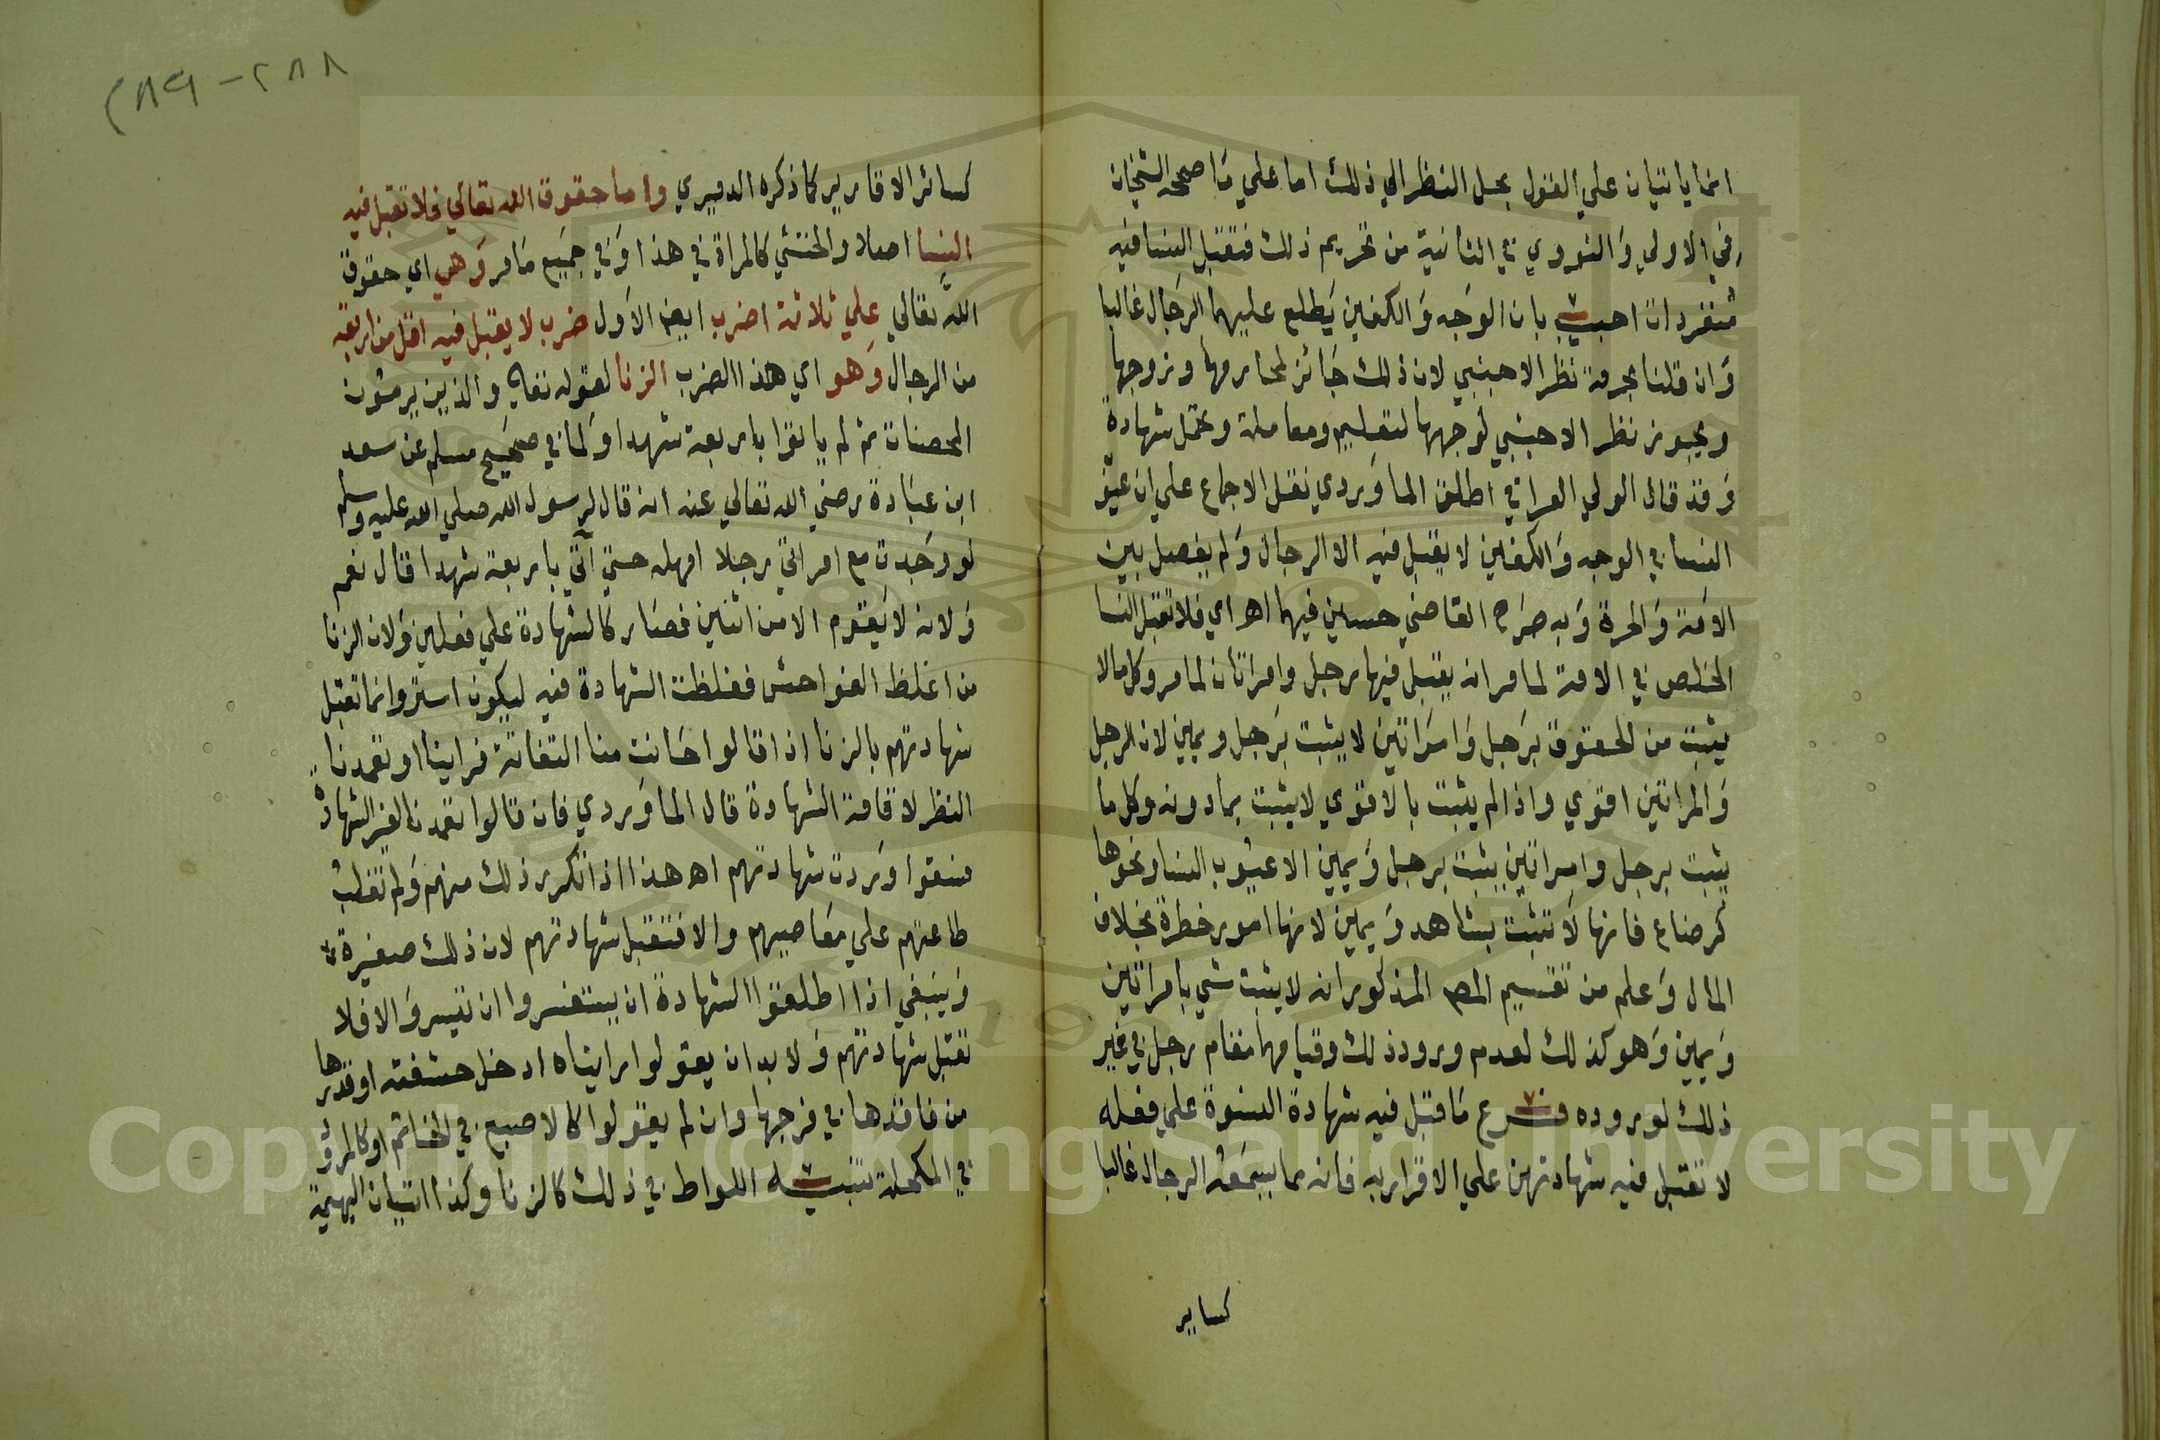 انما ياتيان علي القول بحل النظر الي ذلك اما علي ما صححه الشيخان
في الاولي والنووي في الثانية من تحريم ذلك فتقبل النسا فيه
منفردات اجيب بان الوجه والكفين يطلع عليهما الرجال غالبا
وان قلنا بحرمة نظر الاجنبي لان ذلك جائز لمحارمها وزوجها
ويجوز نظر الاجنبي لوجهها لتعليم ومعاملة وتحمل شهادة
وقد قال الولي العراقي اطلق الماوردي نقل الاجماع علي ان عيوب
النسا في الوجه والكفين لا يقبل فيه الا الرجال ولم يفصل بين
الامة والحرة وبه صرح القاضي حسين فيهما اه اي فلا تقبل النسا
الخلص في الامة لما مر انه يقبل فيها رجل وامراتان لما مر وكل مالا
يثبت من الحقوق برجل وامراتين لا يثبت برجل ويمين لان الرجل
والمراتين اقوي واذا لم يثبت بالاقوي لا يثبت بما دونه وكل ما
يثبت برجل وامراتين يثبت برجل ويمين الا عيوب النسا ونحوها
كرضاع فانها لا تثبت بشاهد ويمين لانها امور خطرة بخلاف
المال وعلم من تقسيم المص المذكور انه لا يثبت شي بامراتين
ويمين وهو كذلك لعدم ورود ذلك وقيامهما مقام رجل في غير
ذلك لوروده فرع ما قبل فيه شهادة النسوة علي فعله
لا تقبل فيه شهادتهن علي الاقرار به فانه مما يسمعه الرجال غالبا
كساير
٢٨٨ - ٢٨٩
كسائر الاقارير كما ذكره الدميري واما حقوق الله تعالي فلا تقبل فيه
النسا اصلا والخنثي كالمراة في هذا وفي جميع ما مر وهي اي حقوق
الله تعالي علي ثلاثة اضرب ايضا الاول ضرب لا يقبل فيه اقل من اربعة
من الرجال وهو اي هذا الضرب الزنا لقوله تعالي والذين يرمون
المحصنات ثم لم ياتوا باربعة شهدا ولما في صحيح مسلم عن سعد
ابن عبادة رضي الله تعالي عنه انه قال لرسول الله صلي الله عليه وسلم
لو وجدت مع امراتي رجلا امهله حتي آتي باربعة شهدا قال نعم
ولانه لا يقوم الا من اثنين فصار كالشهادة علي فعلين ولان الزنا
من اغلظ الفواحش فغلظت الشهادة فيه ليكون استر وانما تقبل
شهادتهم بالزنا اذا قالوا حانت منا التفاتة فراينا او تعمدنا
النظر لاقامة الشهادة قال الماوردي فان قالوا تعمدنا لغير الشهادة
فسقوا وردت شهادتهم اه هذا اذا تكرر ذلك منهم ولم تغلب
طاعتهم علي معاصيهم والا فتقبل شهادتهم لان ذلك صغيرة
وينبغي اذا اطلقوا الشهادة ان يستفسروا ان تيسر والا فلا
تقبل شهادتهم ولا بد ان يقولوا رايناه ادخل حشفته او قدرها
من فاقدها في فرجها وان لم يقولوا كالاصبع في الخاتم او كالمرود
في المكحلة تنبيه اللواط في ذلك كالزنا وكذا اتيان البهيمة
Copyright © King Saud University